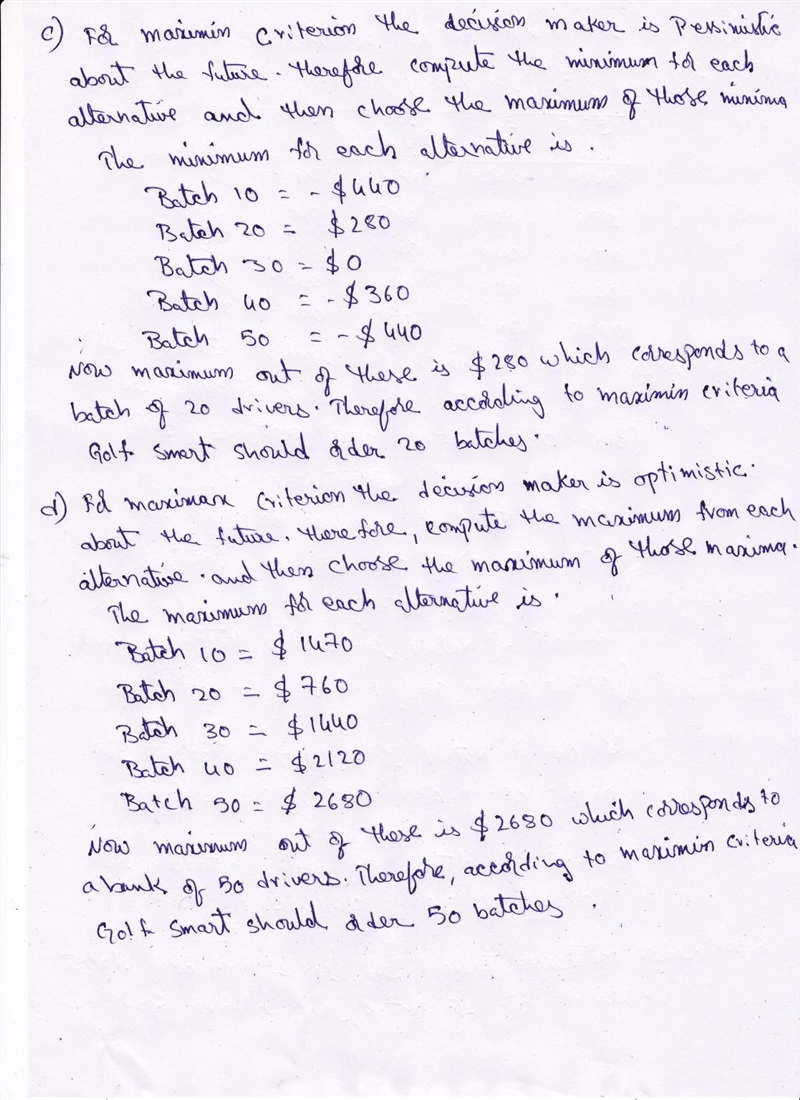 c) For maximin Criterion the decision maker is Pessimistic
about the future. Therefore compute the minimum for each
alternative and then choose the maximum of those minima
The minimum for each alternative is.
Batch 10 = - $440
Batch 20 = $280
Batch 30 = $0
Batch 40 = - $360
Batch 50 = - $440
Now maximum out of these is $280 which corresponds to a
batch of 20 drivers. Therefore according to maximin criteria
Golf Smart should order 20 batches.
d) For maximax Criterion the decision maker is optimistic.
about the future. Therefore, compute the maximum from each
alternative. and then choose the maximum of those maxima.
The maximum for each alternative is.
Batch 10 = $ 1470
Batch 20 = $760
Batch 30 = $1440
Batch 40 = $2120
Batch 50 = $ 2680
Now maximum out of these is $2680 which corresponds to
a bank of 50 drivers. Therefore, according to maximin criteria
Golf Smart should order 50 batches.